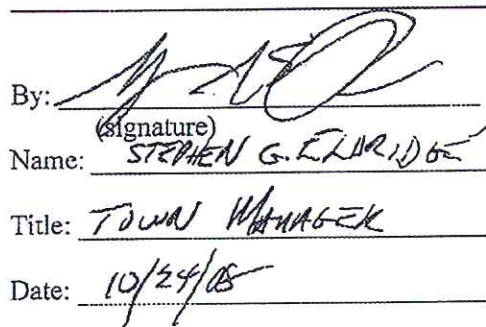 By:
(signature)
Name: STEPHEN G. ELDRIDGE
Title: TOWN MANAGER
Date: 10/24/05